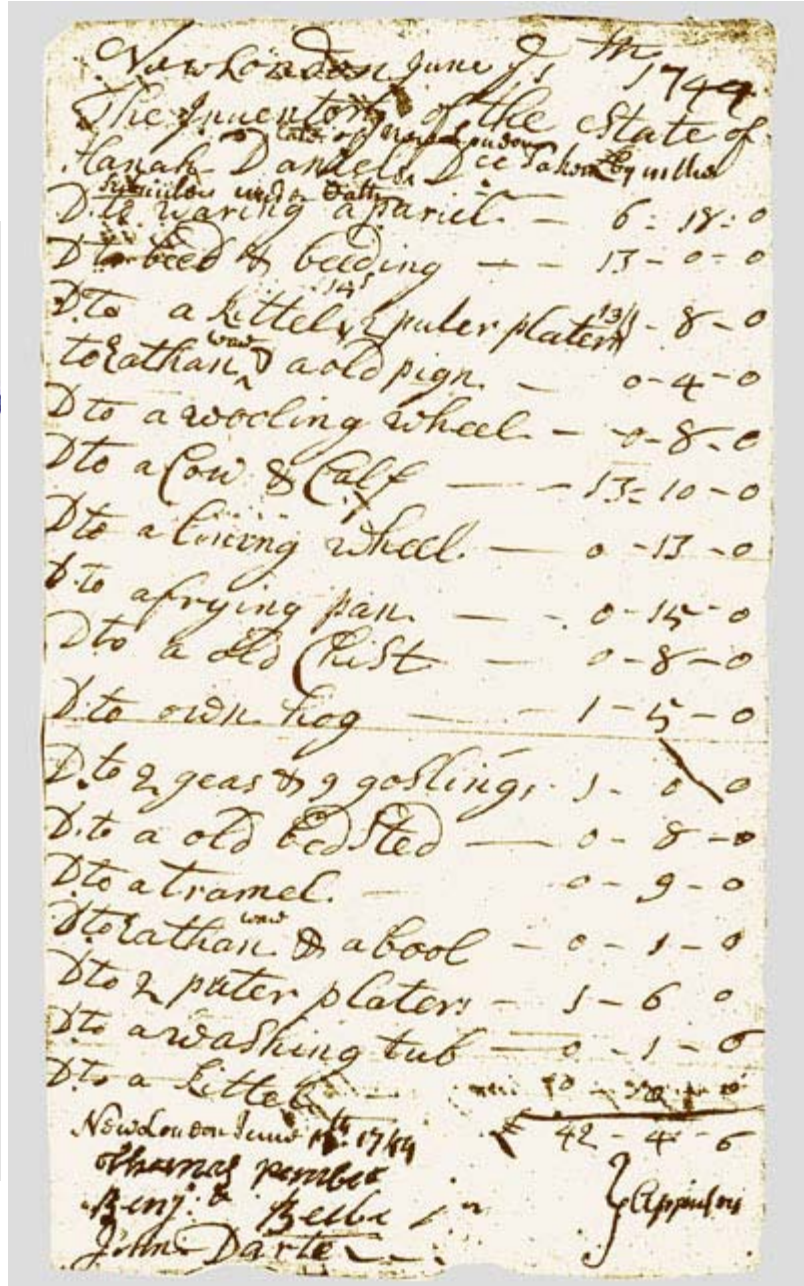 New London June 1th 1744
The Inventory of the Estate of
late of New London
Hanah Daniels Dec Taken by us the
under oath
D.to waring apariel — 6 : 18 : 0
D to beed & beeding — — 13 – 0 – 0
D.to a kittel & 2 puter platers – 8 – 0
to Eathan waw & a old pign — 0 – 4 – 0
D to a wooling wheel – – 0 – 8 – 0
D to a Cow & Calf — — 13 – 10 – 0
D to a lining wheel — 0 – 13 – 0
D.to a frying pan — – 0 – 15 – 0
D to a old Chist — 0 – 8 – 0
D.to own hog — — 1 – 5 – 0
D.to 2 geas & 9 goslings 1 – 0 0
D.to a old bedSted — 0 – 8 – 0
D to a tramel — 0 – 9 – 0
D to Eathan waw & a bool – 0 – 1 – 0
D to 2 puter platers – 1 – 6 0
D to a washing tub — 0 – 1 – 6
D to a kittel
£ 42 – 4 – 6
New London June 1744
Thomas
Benj.
John Darte